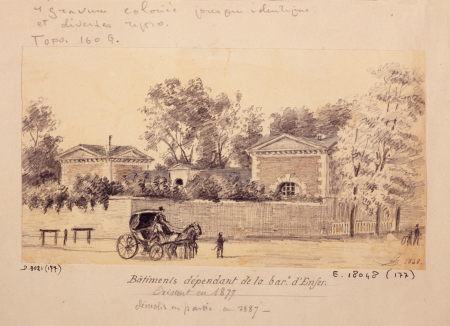 4 gravures coloriés presque identiques
et diverses repro.
Topo. 160 G.
D. 9081 (177)
E. 18048 (177)
Bâtiments dépendant de la bar.re d'Enfer.
Existent en 1877
démolis en partie en 1887 -